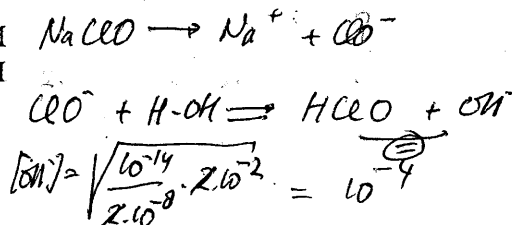 NaClO → Na⁺ + ClO⁻
ClO⁻ + H-OH ⇌ HClO + OH⁻
[OH⁻] = √(10⁻¹⁴ / 2·10⁻⁸ · 2·10⁻²) = 10⁻⁴